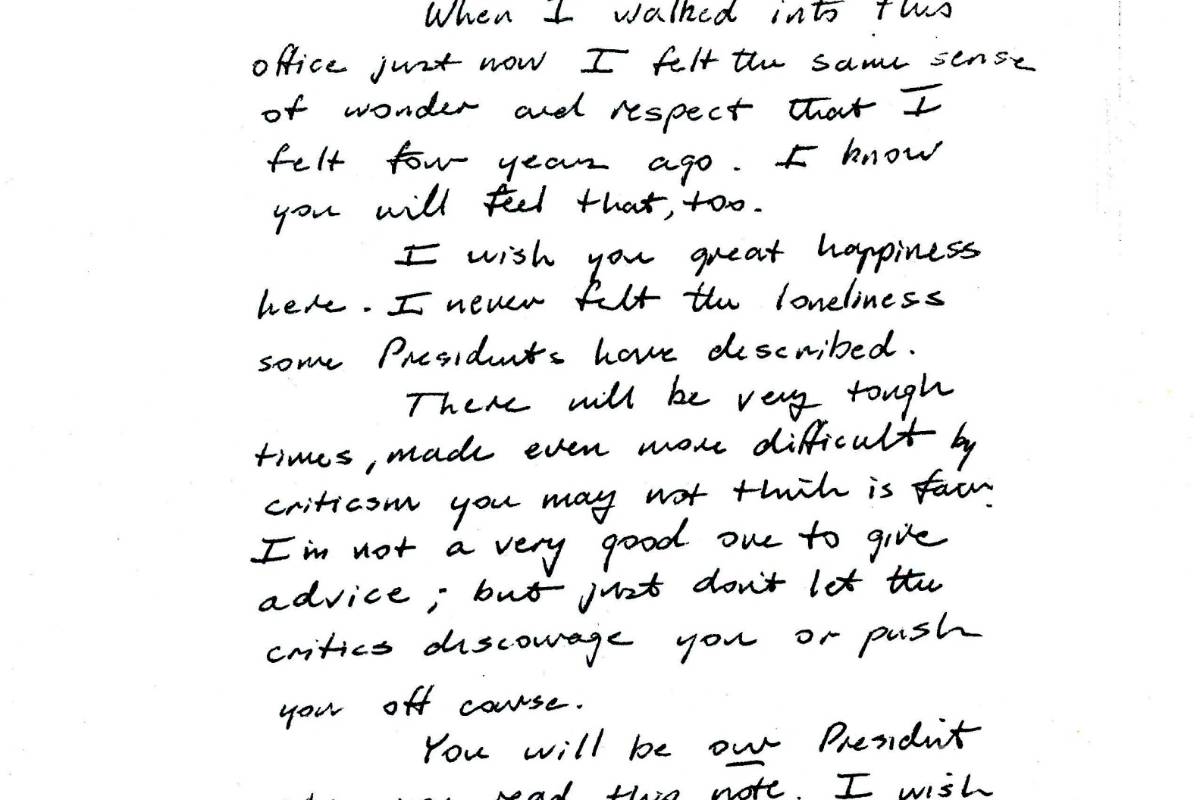 When I walked into this
office just now I felt the same sense
of wonder and respect that I
felt four years ago. I know
you will feel that, too.
I wish you great happiness
here. I never felt the loneliness
some Presidents have described.
There will be very tough
times, made even more difficult by
criticism you may not think is fair.
I'm not a very good one to give
advice; but just don't let the
critics discourage you or push
you off course.
You will be our President
read this note. I wish